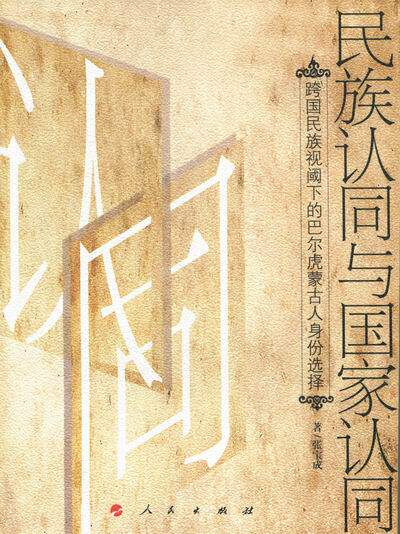 民族认同与国家认同
跨国民族视阈下的巴尔虎蒙古人身份选择
著/张宝成
认同
人民出版社